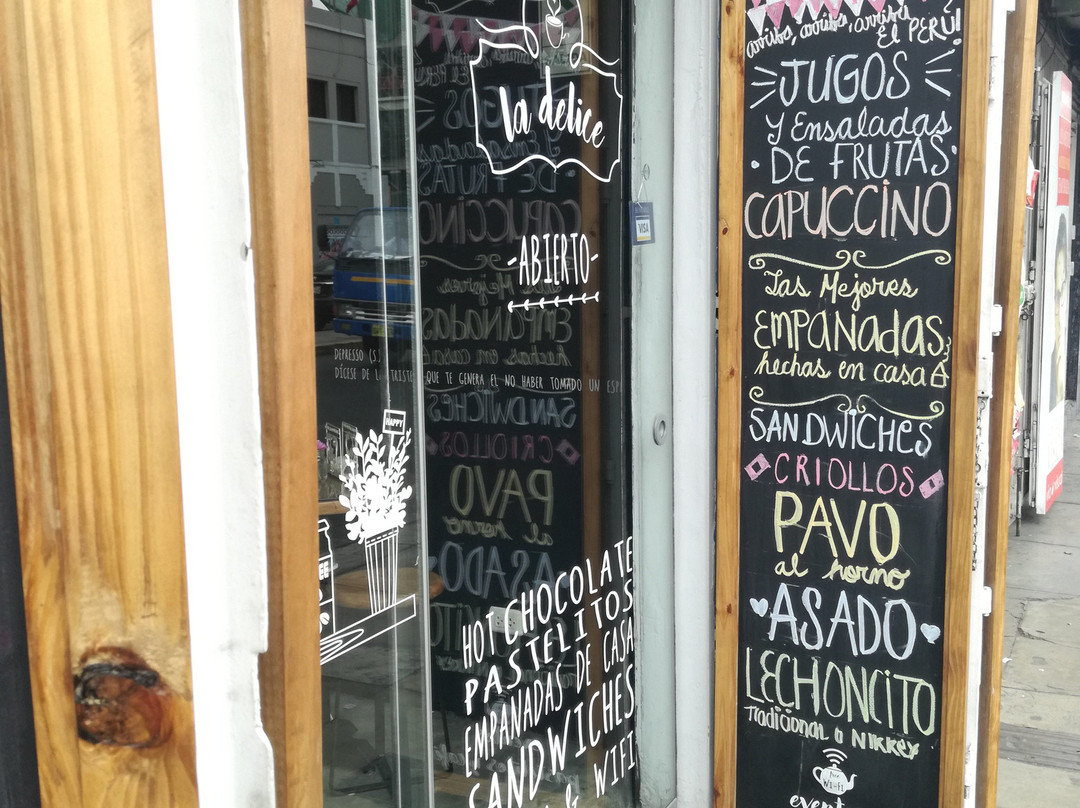 la delice
-ABIERTO-
VISA
DEPRESSO (S.
DÍCESE DE LA TRISTE QUE TE GENERA EL NO HABER TOMADO UN ESP
HAPPY
HOT CHOCOLATE
PASTELITOS
EMPANADAS DE CASA
SANDWICHES
WIFI
arriba, arriba, arriba
EL PERÚ!
JUGOS
Y Ensaladas
DE FRUTAS
CAPUCCINO
Las Mejores
EMPANADAS
hechas en casa
SANDWICHES
CRIOLLOS
PAVO
al horno
ASADO
LECHONCITO
Tradicional o Nikkey
WI-FI
event